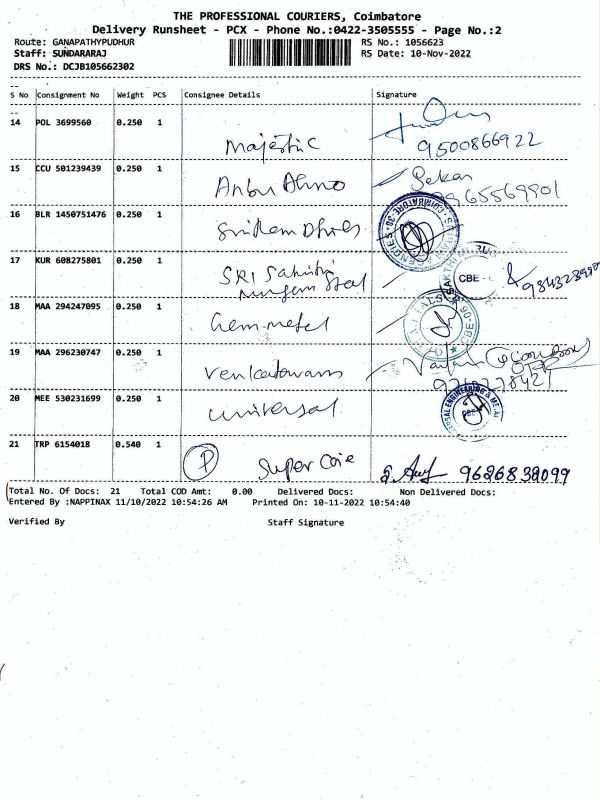 THE PROFESSIONAL COURIERS, Coimbatore
Delivery Runsheet - PCX - Phone No.:0422-3505555 - Page No.:2
Route: GANAPATHYPUDHUR RS No.: 1056623
Staff: SUNDARARAJ RS Date: 10-Nov-2022
DRS No.: DCJB105662302
S No Consignment No Weight PCS Consignee Details Signature
14 POL 3699560 0.250 1
Majestic 9500866922
15 CCU 501239439 0.250 1
Sekar
16 BLR 1450751476 0.250 1
17 KUR 608275801 0.250 1
SRI Sakthi
CBE
18 MAA 294247095 0.250 1
Gem metal
19 MAA 296230747 0.250 1
20 MEE 530231699 0.250 1
universal
21 TRP 6154018 0.540 1
P Super 9626838099
Total No. Of Docs: 21 Total COD Amt: 0.00 Delivered Docs: Non Delivered Docs:
Entered By :NAPPINAX 11/10/2022 10:54:26 AM Printed On: 10-11-2022 10:54:40
Verified By Staff Signature